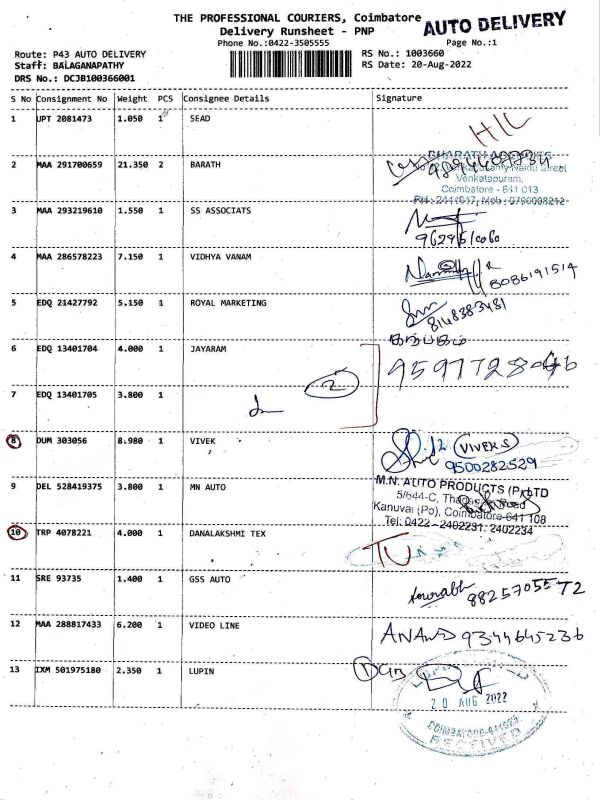 THE PROFESSIONAL COURIERS, Coimbatore
AUTO DELIVERY
Delivery Runsheet - PNP
Phone No.:0422-3505555
Page No.:1
Route: P43 AUTO DELIVERY
RS No.: 1003660
Staff: BALAGANAPATHY
RS Date: 20-Aug-2022
DRS No.: DCJB100366001
S No Consignment No Weight PCS Consignee Details Signature
1 UPT 2081473 1.050 1 SEAD
2 MAA 291700659 21.350 2 BARATH
Venkatapuram,
Coimbatore - 641 013
3 MAA 293219610 1.550 1 SS ASSOCIATS
4 MAA 286578223 7.150 1 VIDHYA VANAM
8086191514
5 EDQ 21427792 5.150 1 ROYAL MARKETING
8148383481
கற்பகம்
6 EDQ 13401704 4.000 1 JAYARAM
2
7 EDQ 13401705 3.800 1
8 DUM 303056 8.980 1 VIVEK
VIVEK S
9500282529
9 DEL 528419375 3.800 1 MN AUTO
M.N. AUTO PRODUCTS (P) LTD
5/644-C, Road
Kanuvai (Po), Coimbatore-641 108
Tel: 0422 - 2402231, 2402234
10 TRP 4078221 4.000 1 DANALAKSHMI TEX
11 SRE 93735 1.400 1 GSS AUTO
Sourabh
8825705572
12 MAA 288817433 6.200 1 VIDEO LINE
ANAND 9344645236
13 IXM 501975180 2.350 1 LUPIN
20 AUG 2022
RECEIVED